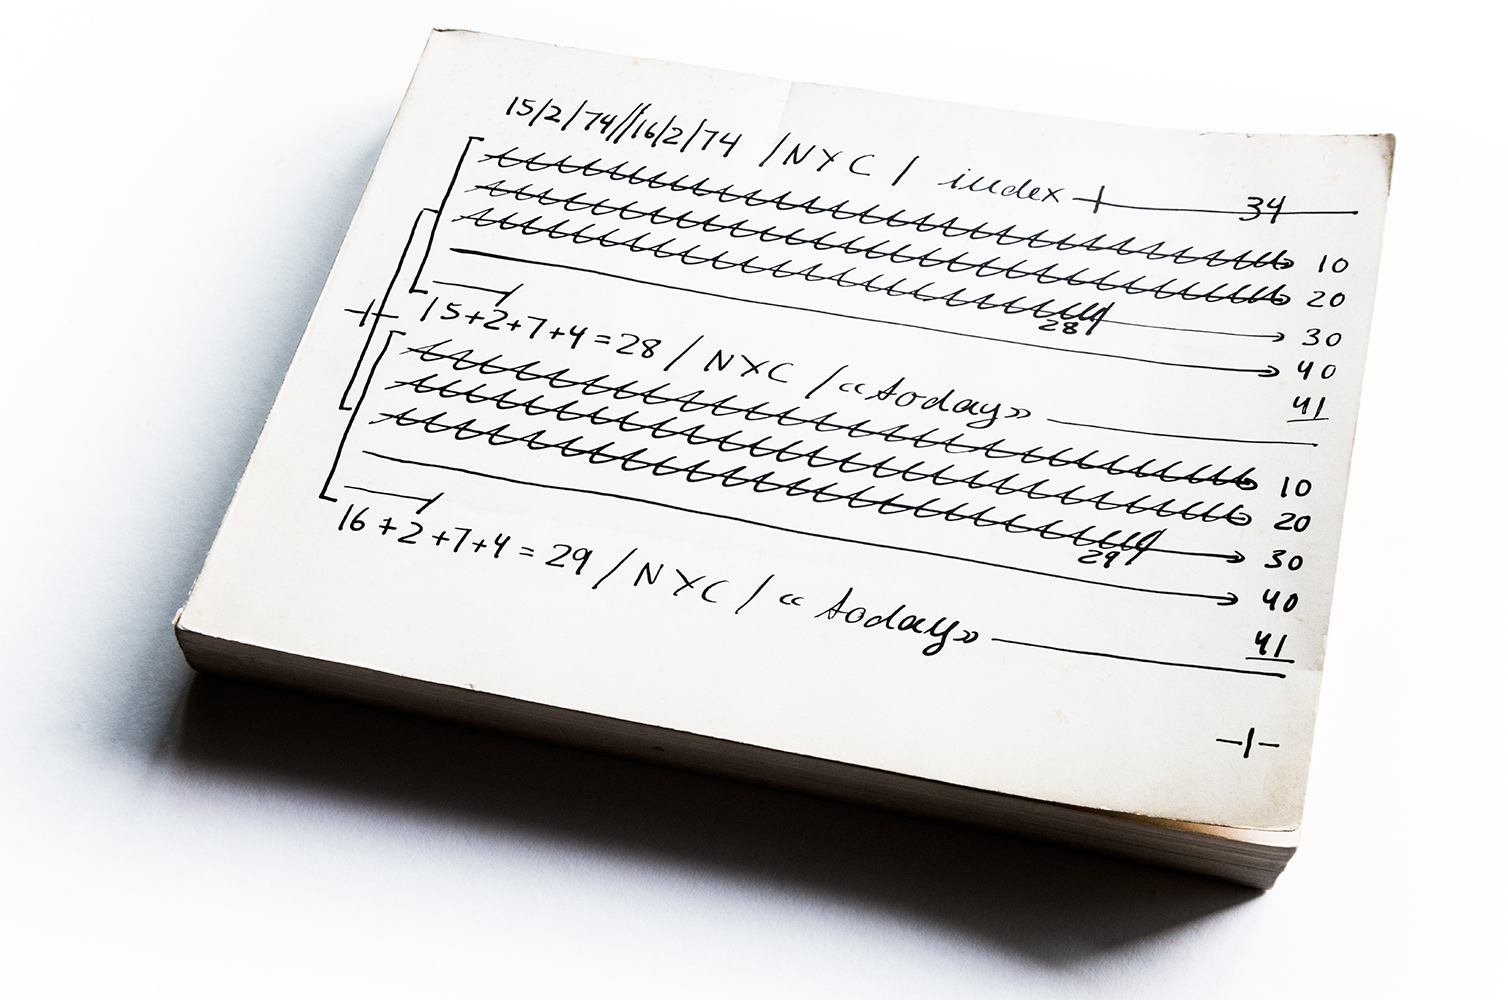 15/2/74//16/2/74 /NYC/ index + 34
10
20
28 30
40
41
15+2+7+4=28 / NYC / «today»
10
20
29 30
40
41
16+2+7+4=29 / NYC / «today»